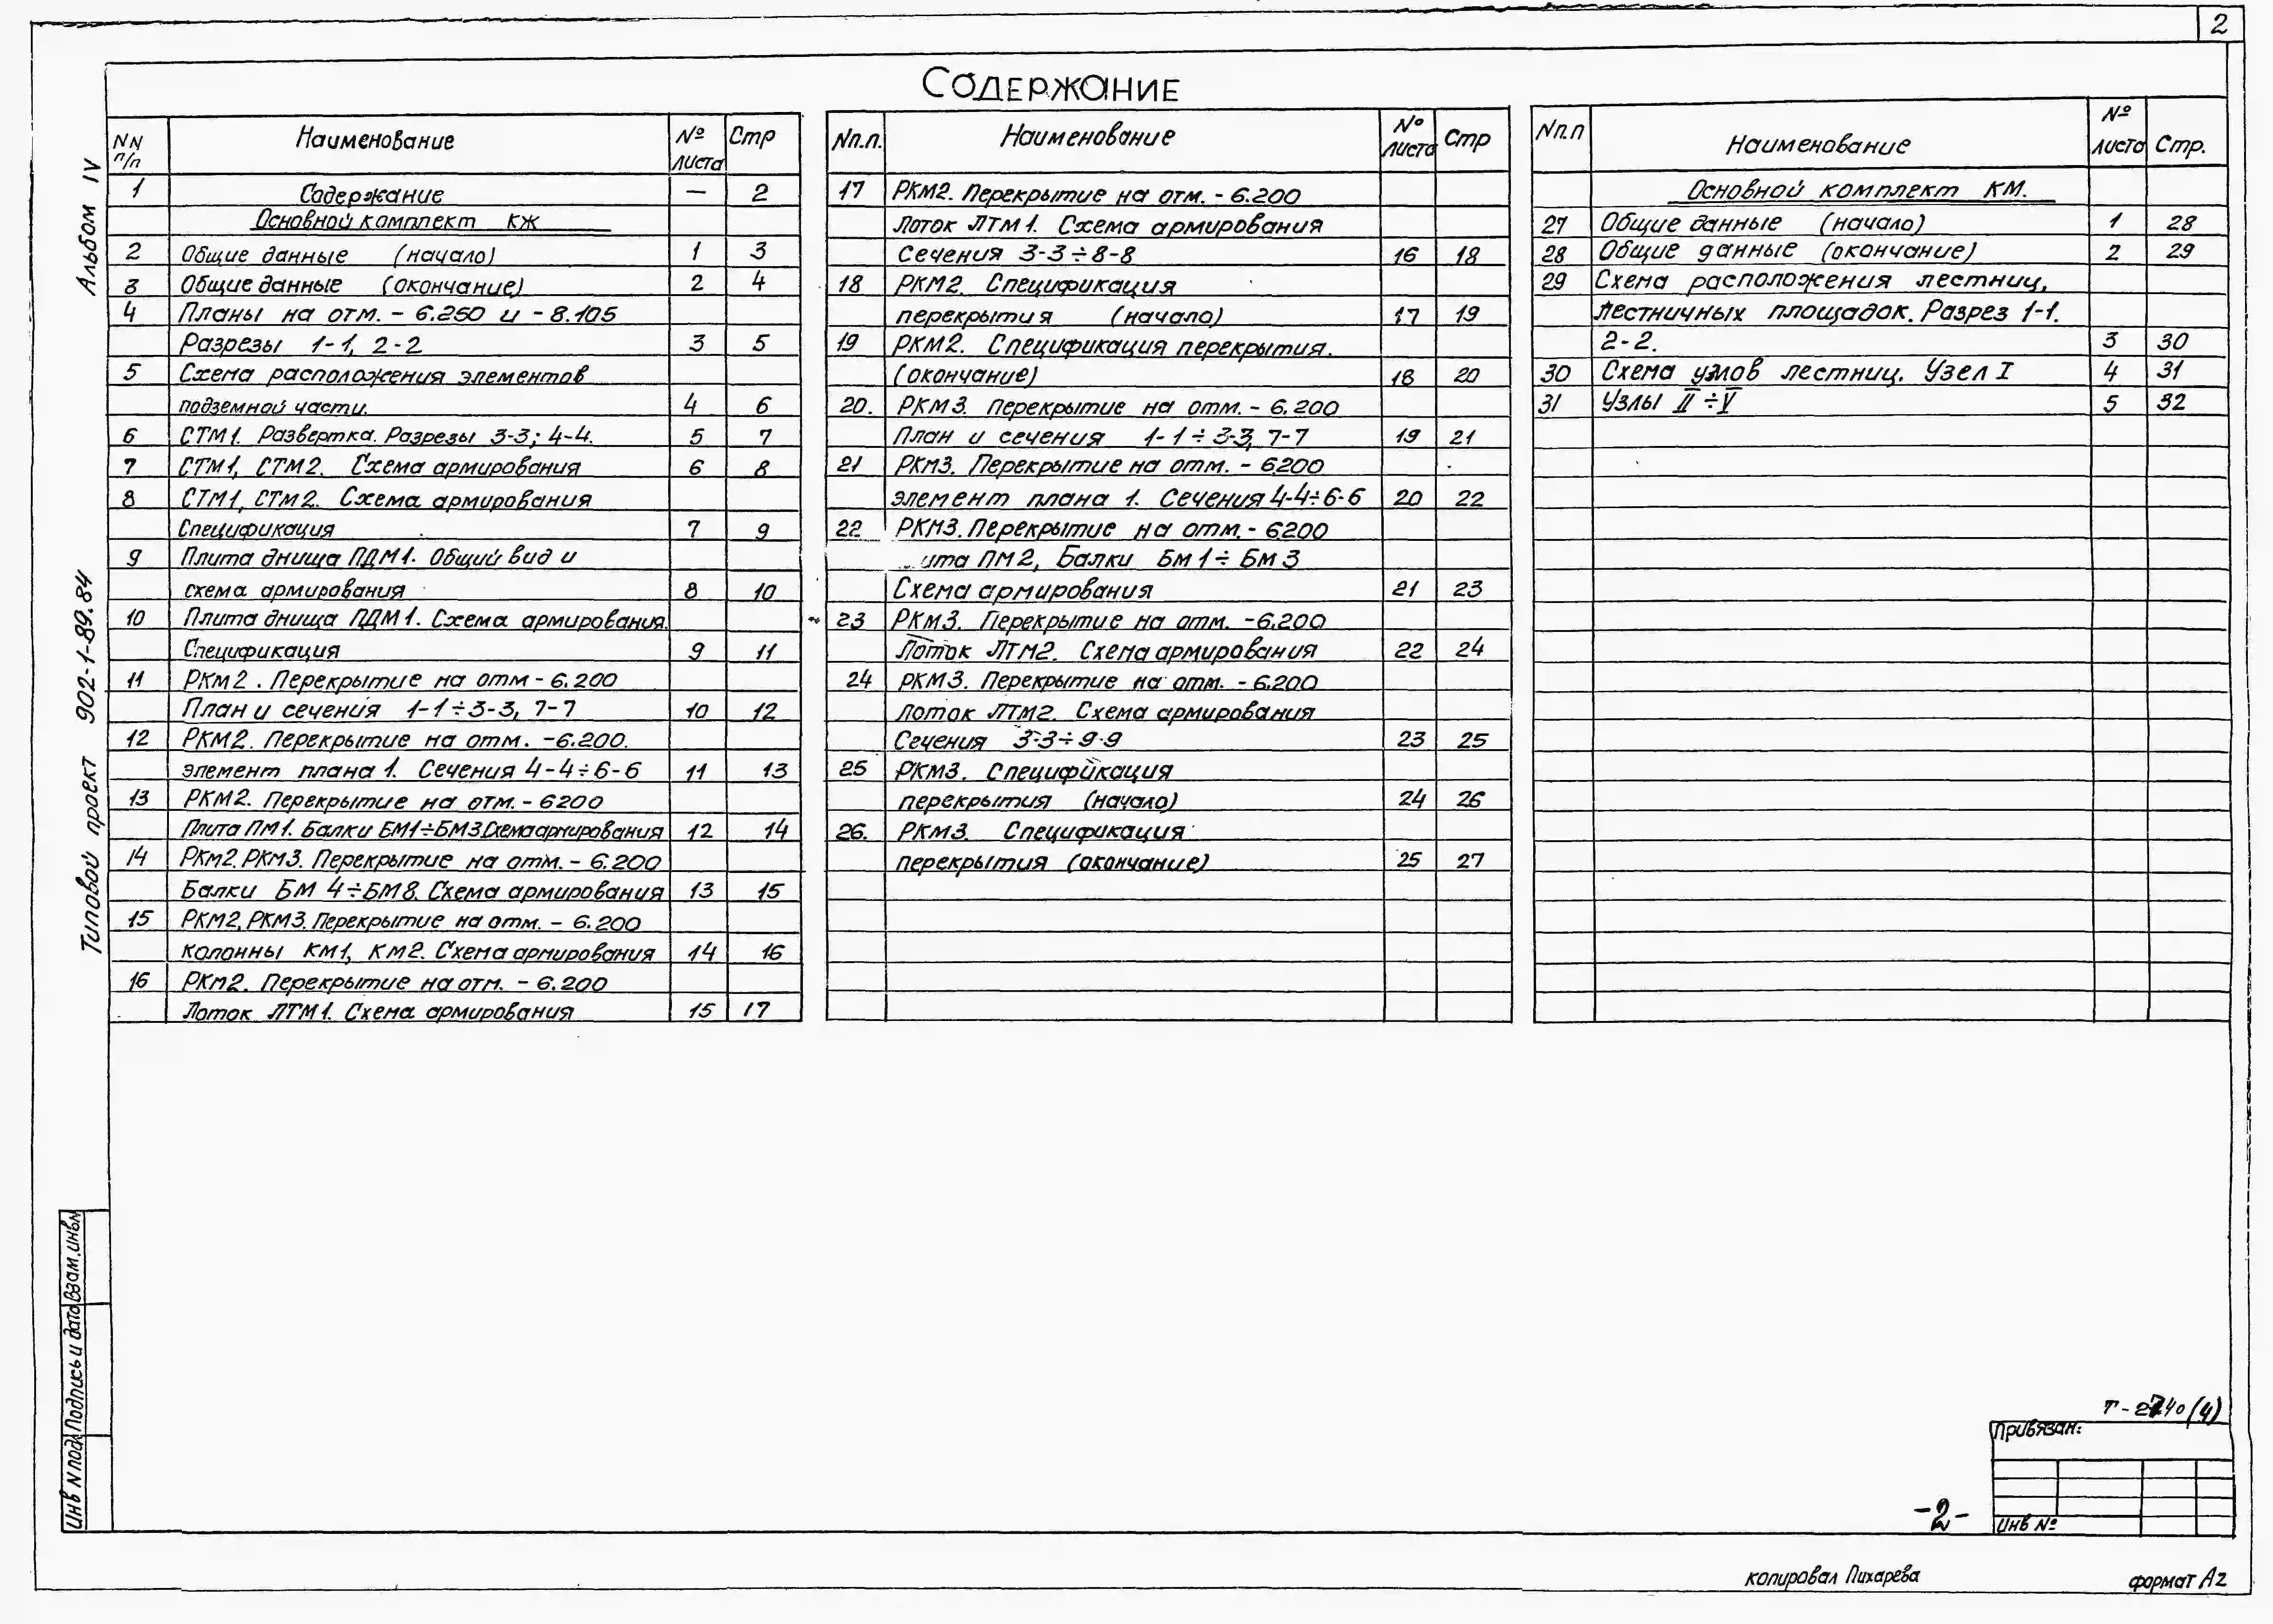 2
Содержание
NN п/п Наименование № листа Стр
1 Содержание — 2
Основной комплект КЖ
2 Общие данные (начало) 1 3
3 Общие данные (окончание) 2 4
4 Планы на отм. - 6.250 и - 8.105
Разрезы 1-1, 2-2 3 5
5 Схема расположения элементов
подземной части. 4 6
6 СТМ1. Развертка. Разрезы 3-3; 4-4. 5 7
7 СТМ1, СТМ2. Схема армирования 6 8
8 СТМ1, СТМ2. Схема армирования
Спецификация 7 9
9 Плита днища ПДМ1. Общий вид и
схема армирования 8 10
10 Плита днища ПДМ1. Схема армирования.
Спецификация 9 11
11 РКм2. Перекрытие на отм - 6.200
План и сечения 1-1÷3-3, 7-7 10 12
12 РКМ2. Перекрытие на отм. -6.200.
элемент плана 1. Сечения 4-4÷6-6 11 13
13 РКМ2. Перекрытие на отм. - 6200
Плита ПМ1. Балки БМ1÷БМ3 Схема армирования 12 14
14 РКм2. РКМ3. Перекрытие на отм. - 6.200
Балки БМ 4÷БМ8. Схема армирования 13 15
15 РКМ2, РКМ3. Перекрытие на отм. - 6.200
колонны КМ1, КМ2. Схема армирования 14 16
16 РКМ2. Перекрытие на отм. - 6.200
Лоток ЛТМ1. Схема армирования 15 17
Nп.п. Наименование № листа Стр
17 РКМ2. Перекрытие на отм. - 6.200
Лоток ЛТМ1. Схема армирования
Сечения 3-3÷8-8 16 18
18 РКМ2. Спецификация
перекрытия (начало) 17 19
19 РКМ2. Спецификация перекрытия.
(окончание) 18 20
20. РКМ3. Перекрытие на отм. - 6.200
План и сечения 1-1÷3-3, 7-7 19 21
21 РКМ3. Перекрытие на отм. - 6200
элемент плана 1. Сечения 4-4÷6-6 20 22
22 РКМ3. Перекрытие на отм. - 6200
ита ПМ2, Балки Бм1÷Бм3
Схема армирования 21 23
23 РКМ3. Перекрытие на отм. -6.200
Лоток ЛТМ2. Схема армирования 22 24
24 РКМ3. Перекрытие на отм. - 6.200
лоток ЛТМ2. Схема армирования
Сечения 3-3÷9-9 23 25
25 РКМ3. Спецификация
перекрытия (начало) 24 26
26. РКМ3. Спецификация
перекрытия (окончание) 25 27
Nп.п Наименование № листа Стр.
Основной комплект КМ.
27 Общие данные (начало) 1 28
28 Общие данные (окончание) 2 29
29 Схема расположения лестниц,
лестничных площадок. Разрез 1-1.
2-2. 3 30
30 Схема узлов лестниц. Узел I 4 31
31 Узлы II÷V 5 32
Альбом IV
Типовой проект 902-1-89.84
Инв N подл Подпись и дата Взам.инвN
Т-2740(4)
Привязан:
Инв №
-2-
копировал Пихарева
формат А2